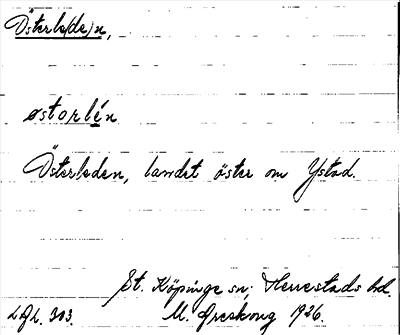 Österle(de)n,
østorlén
Österleden, landet öster om Ystad.
St. Köpinge sn, Herrestads hd.
M. Greskong 1926.